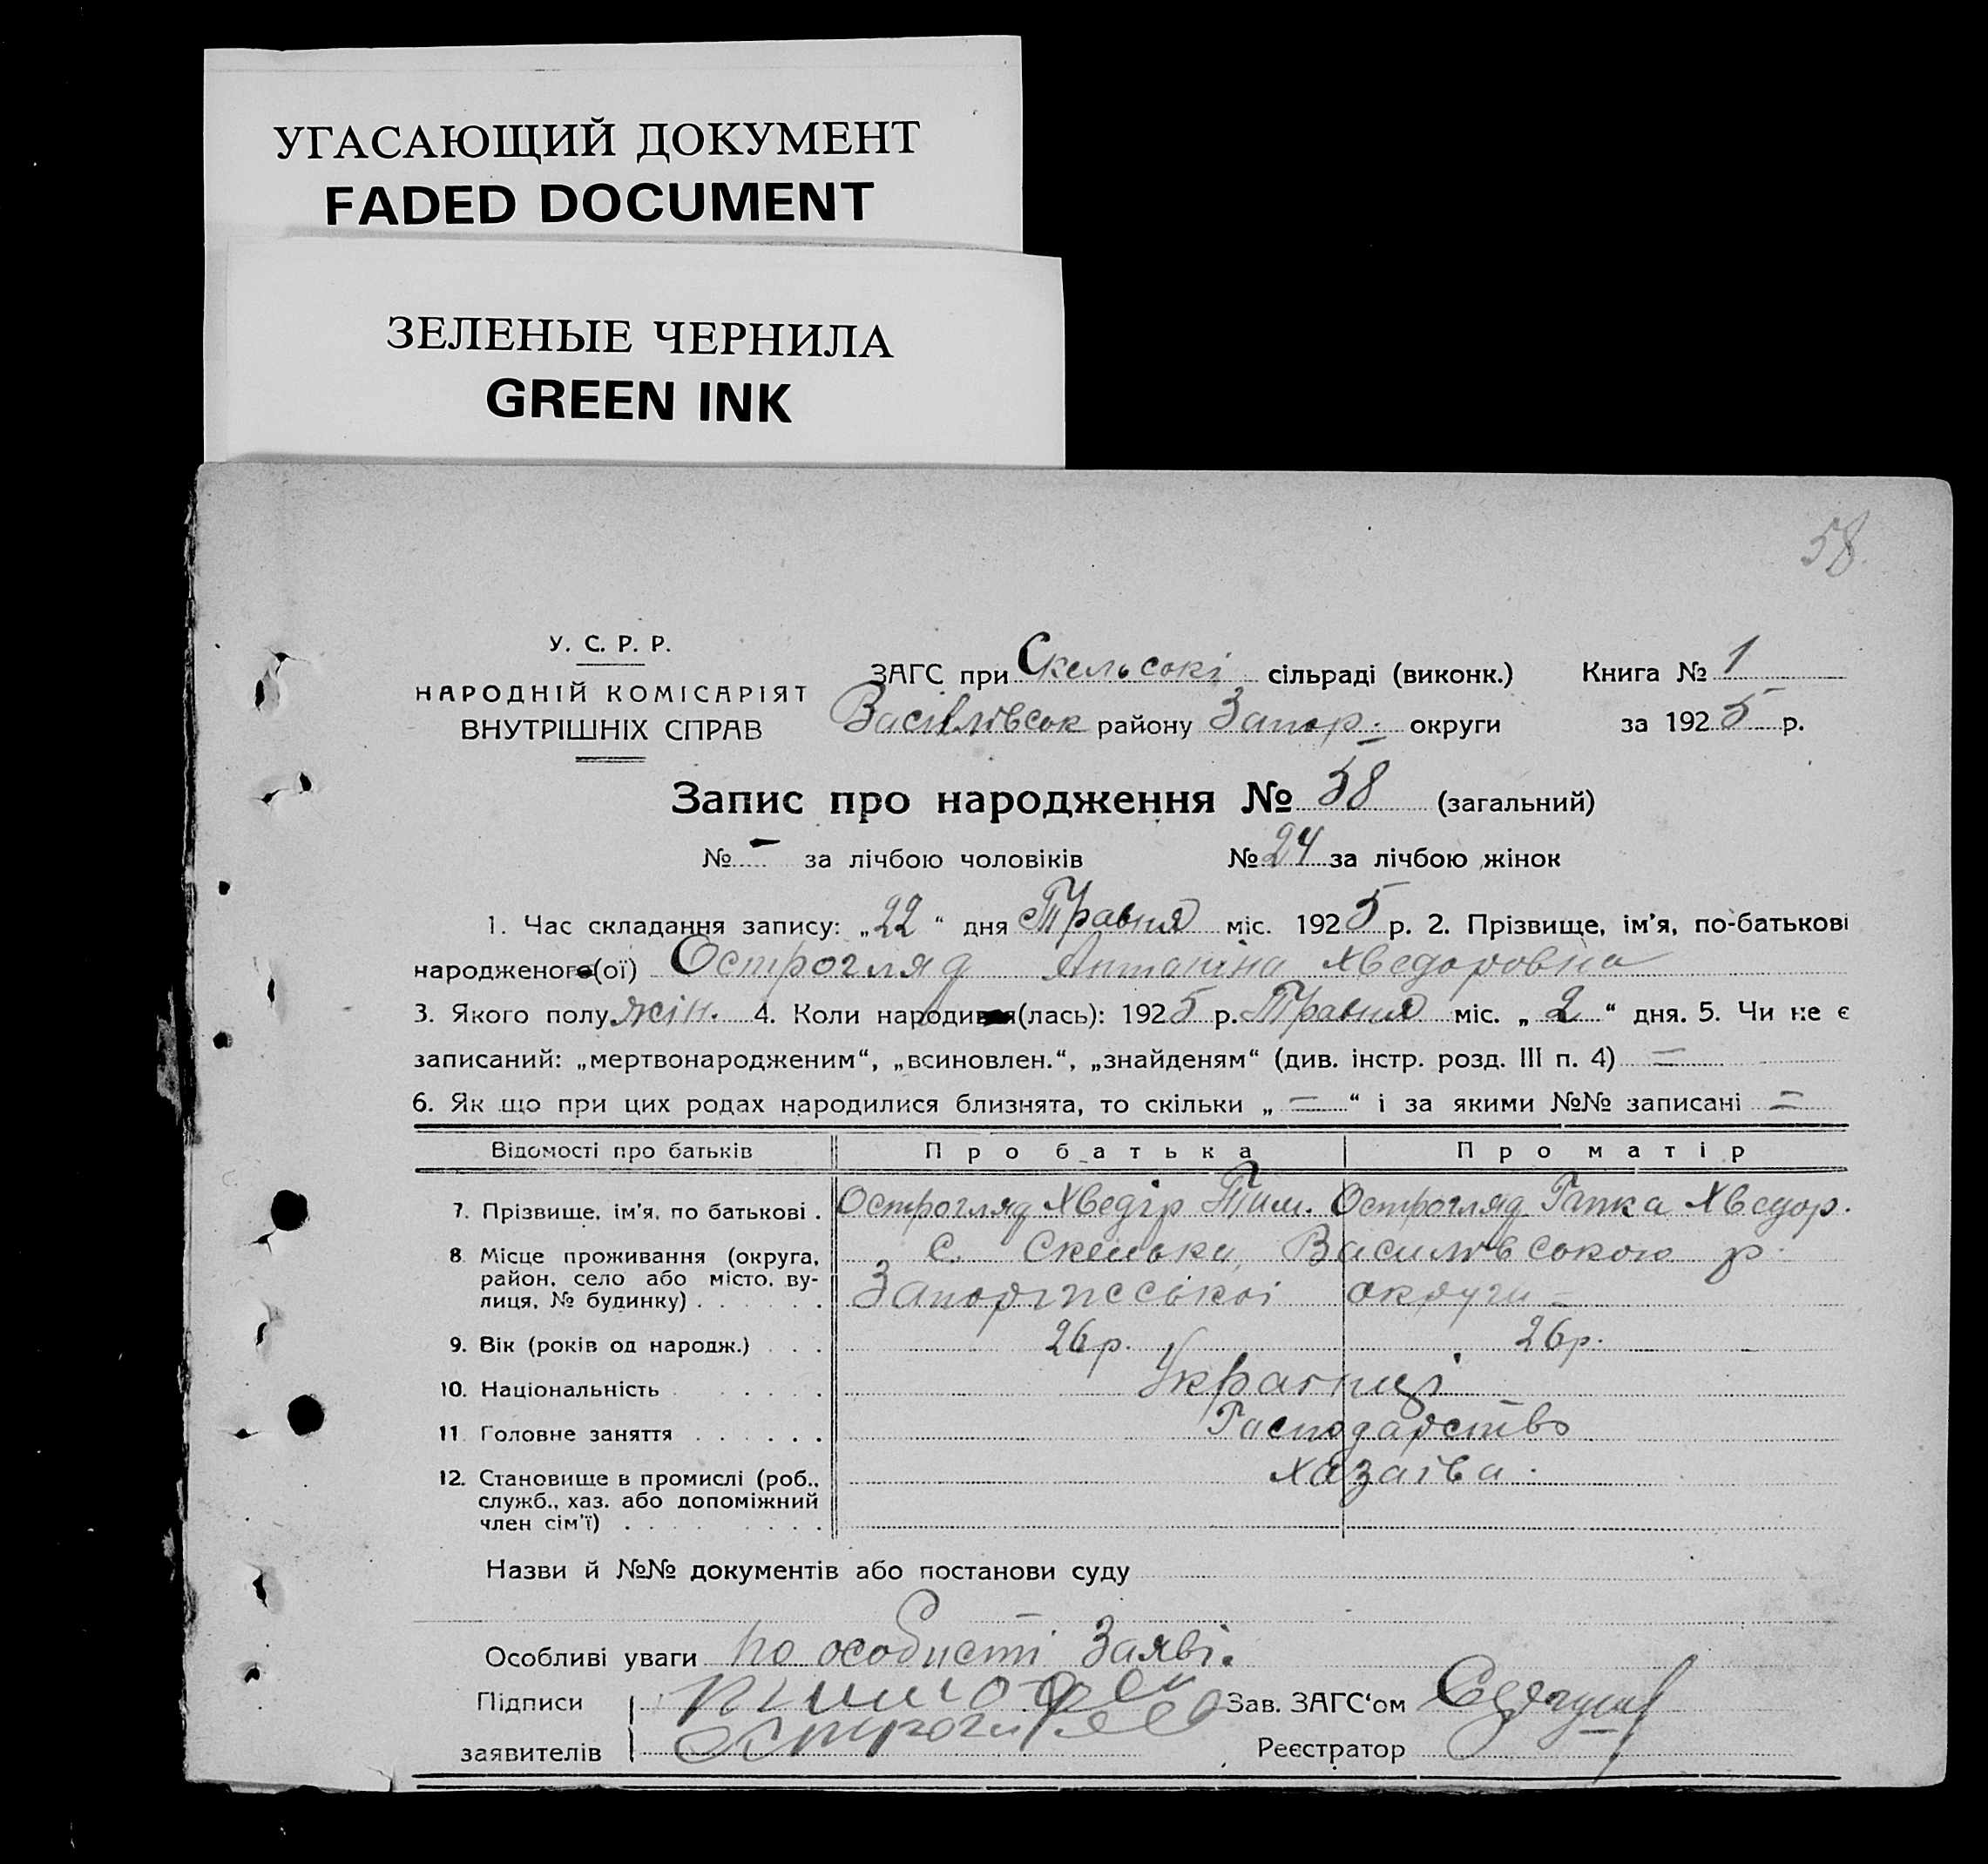 УГАСАЮЩИЙ ДОКУМЕНТ
FADED DOCUMENT
ЗЕЛЕНЫЕ ЧЕРНИЛА
GREEN INK
58
У. С. Р. Р.
НАРОДНІЙ КОМІСАРІЯТ
ВНУТРІШНІХ СПРАВ
ЗАГС при Скельсокі сільраді (виконк.) Книга № 1
Василівсок району Запор. округи за 1925 р.
Запис про народження № 58 (загальний)
№ – за лічбою чоловіків № 24 за лічбою жінок
1. Час складання запису: „22“ дня Травня міс. 1925 р. 2. Прізвище, ім'я, по-батькові
народженого(ої) Острогляд Антаніна Хведоровна
3. Якого полу жін. 4. Коли народився(лась): 1925 р. Травня міс. „2“ дня. 5. Чи не є
записаний: „мертвонародженим“, „всиновлен.“, „знайденям“ (див. інстр. розд. III п. 4) =
6. Як що при цих родах народилися близнята, то скільки „=“ і за якими №№ записані =
Відомості про батьків Про батька Про матір
7. Прізвище, ім'я, по батькові . Острогляд Хведір Тим. Острогляд Гапка Хведор.
8 Місце проживання (округа, район, село або місто, ву-лиця, № будинку) . . . . . . с. Скельки, Василівською р.
Запоріжської округи =
9. Вік (років од народж.) . . . 26 р. 26 р.
10. Національність . . . . . . . Украінці
11 Головне заняття . . . . . . Гасподарство
12. Становище в промислі (роб., служб., хаз. або допоміжний член сім'ї) . . . . . . . . . Хазаіва.
Назви й №№ документів або постанови суду
Особливі уваги по особисті Заяві.
Підписи Зав. ЗАГС'ом
заявителів Реєстратор